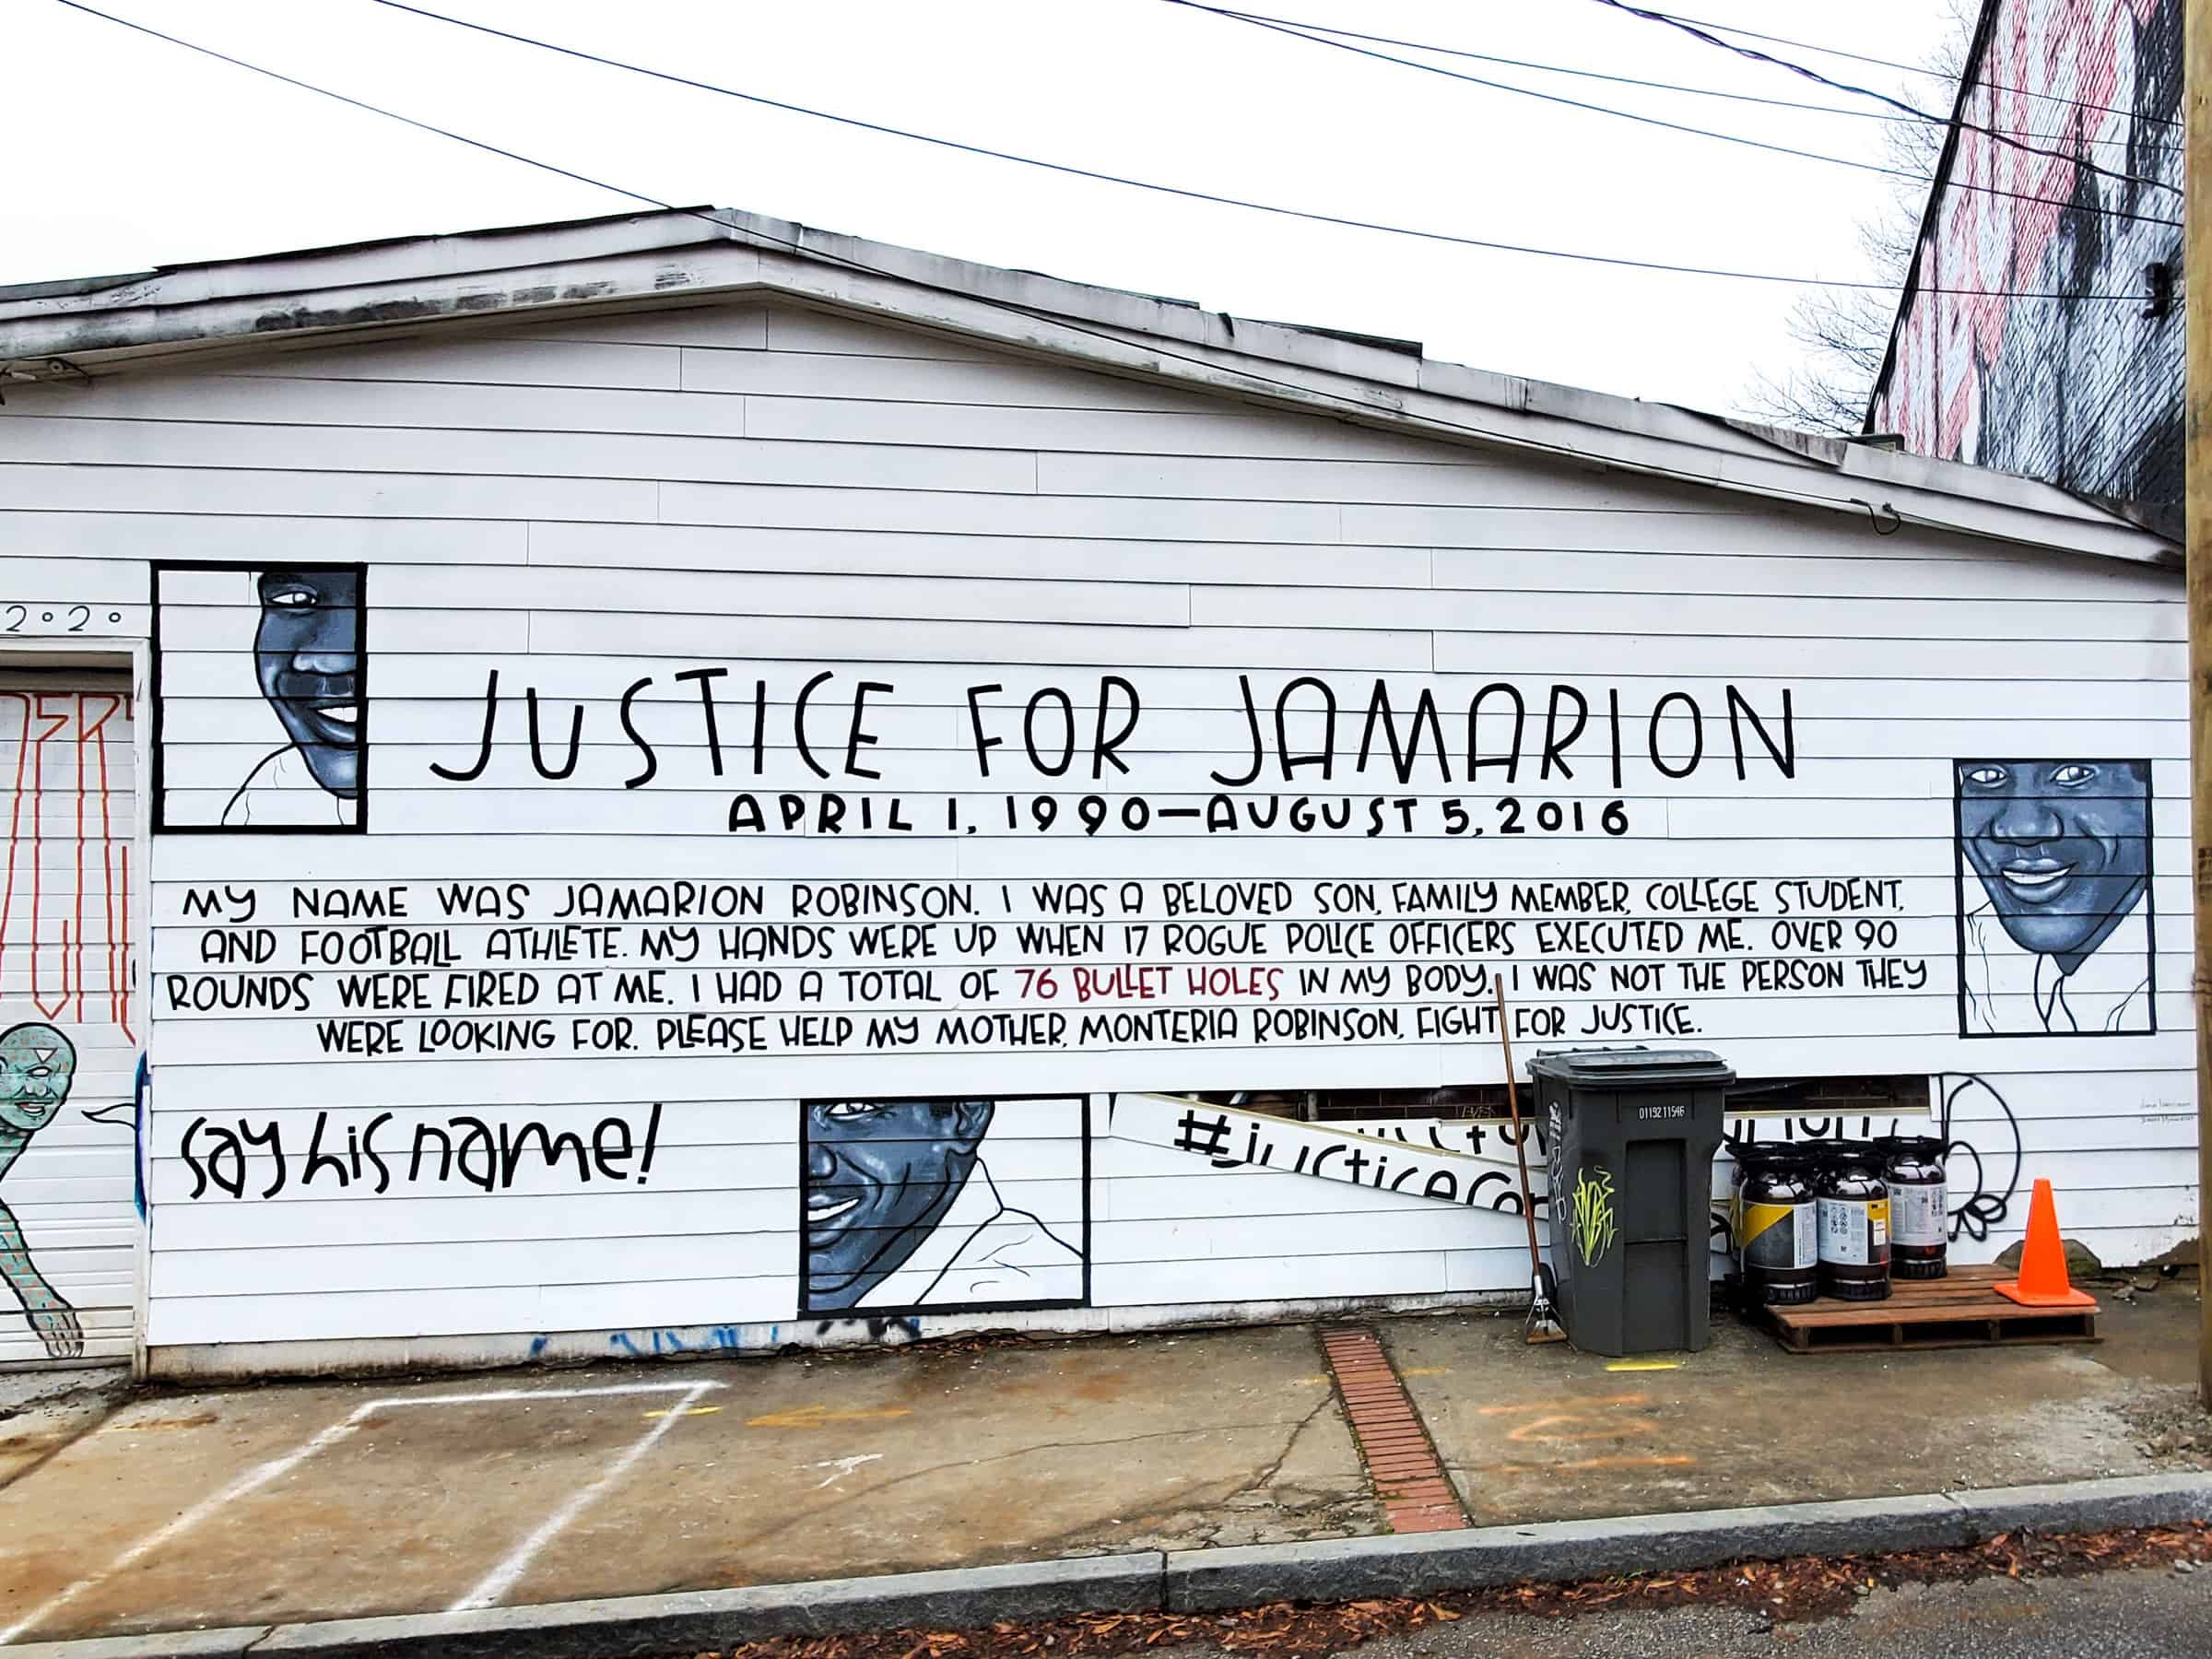 2020
JUSTICE FOR JAMARION
APRIL 1, 1990—AUGUST 5, 2016
MY NAME WAS JAMARION ROBINSON. I WAS A BELOVED SON, FAMILY MEMBER, COLLEGE STUDENT,
AND FOOTBALL ATHLETE. MY HANDS WERE UP WHEN 17 ROGUE POLICE OFFICERS EXECUTED ME. OVER 90
ROUNDS WERE FIRED AT ME. I HAD A TOTAL OF 76 BULLET HOLES IN MY BODY. I WAS NOT THE PERSON THEY
WERE LOOKING FOR. PLEASE HELP MY MOTHER, MONTERIA ROBINSON, FIGHT FOR JUSTICE.
say his name!
01192 11546